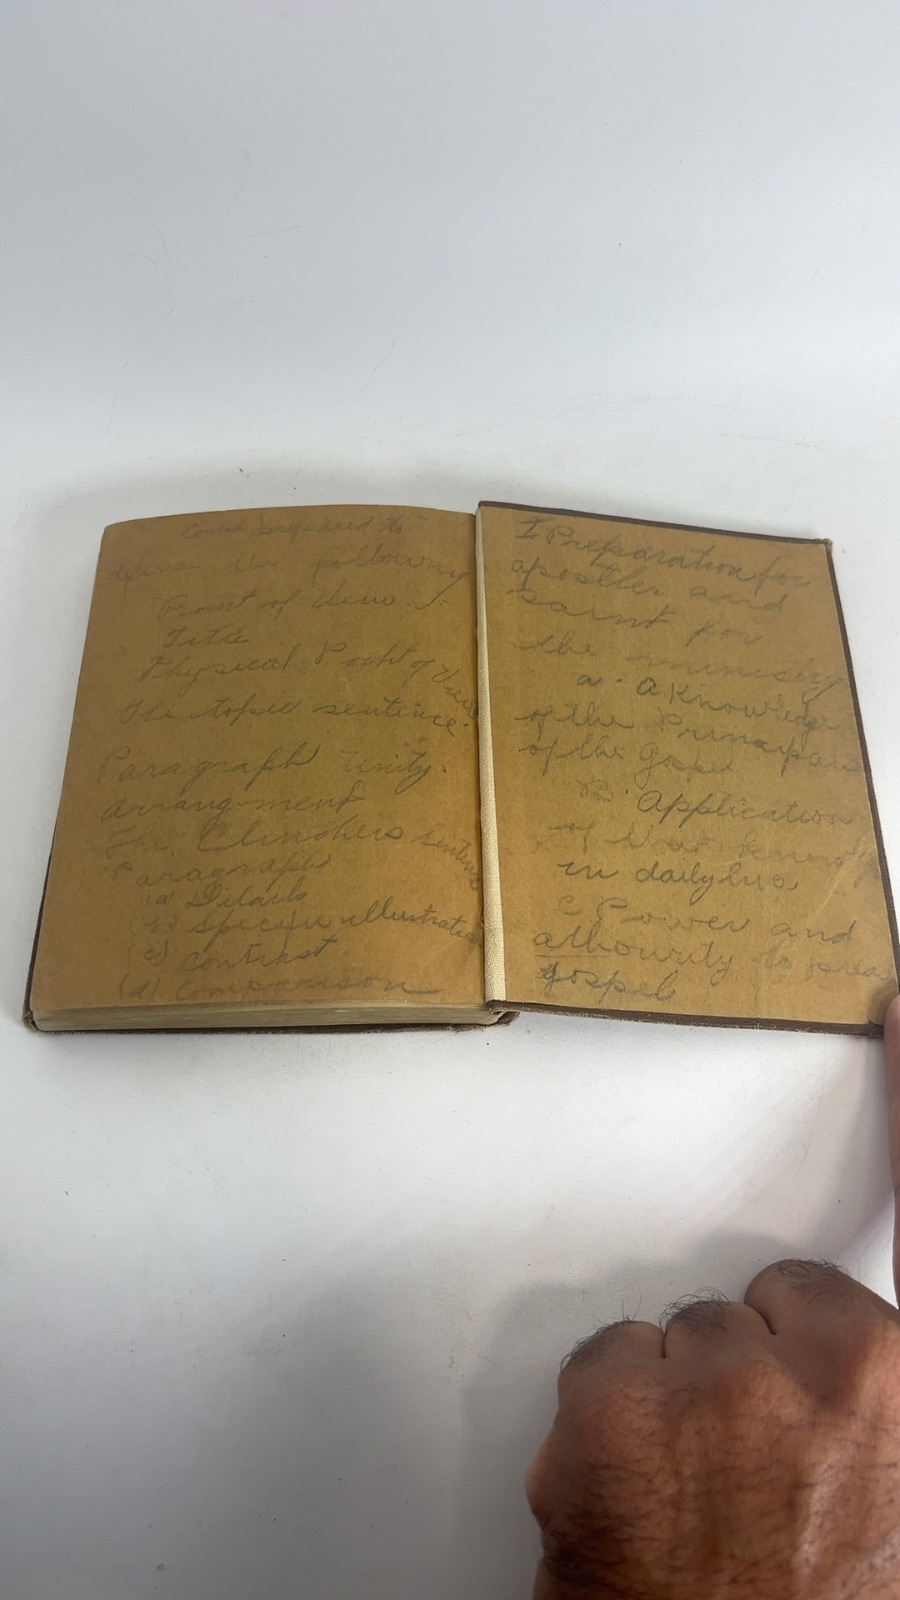 Come prepared to
define the following
Point of View.
Title
Physical Point of View
The topic sentence.
Paragraph Unity.
arrangment
The Clinchers sentence
Paragraphs
(a) Details
(b) Specific illustration
(c) contrast
(d) Comparison
I Preparation for
apostles and
saint for
the ministry
a. A Knowledge
of the Principals
of the Gospel
B. Application
of that
in daily live
C Power and
athourity to
gospel